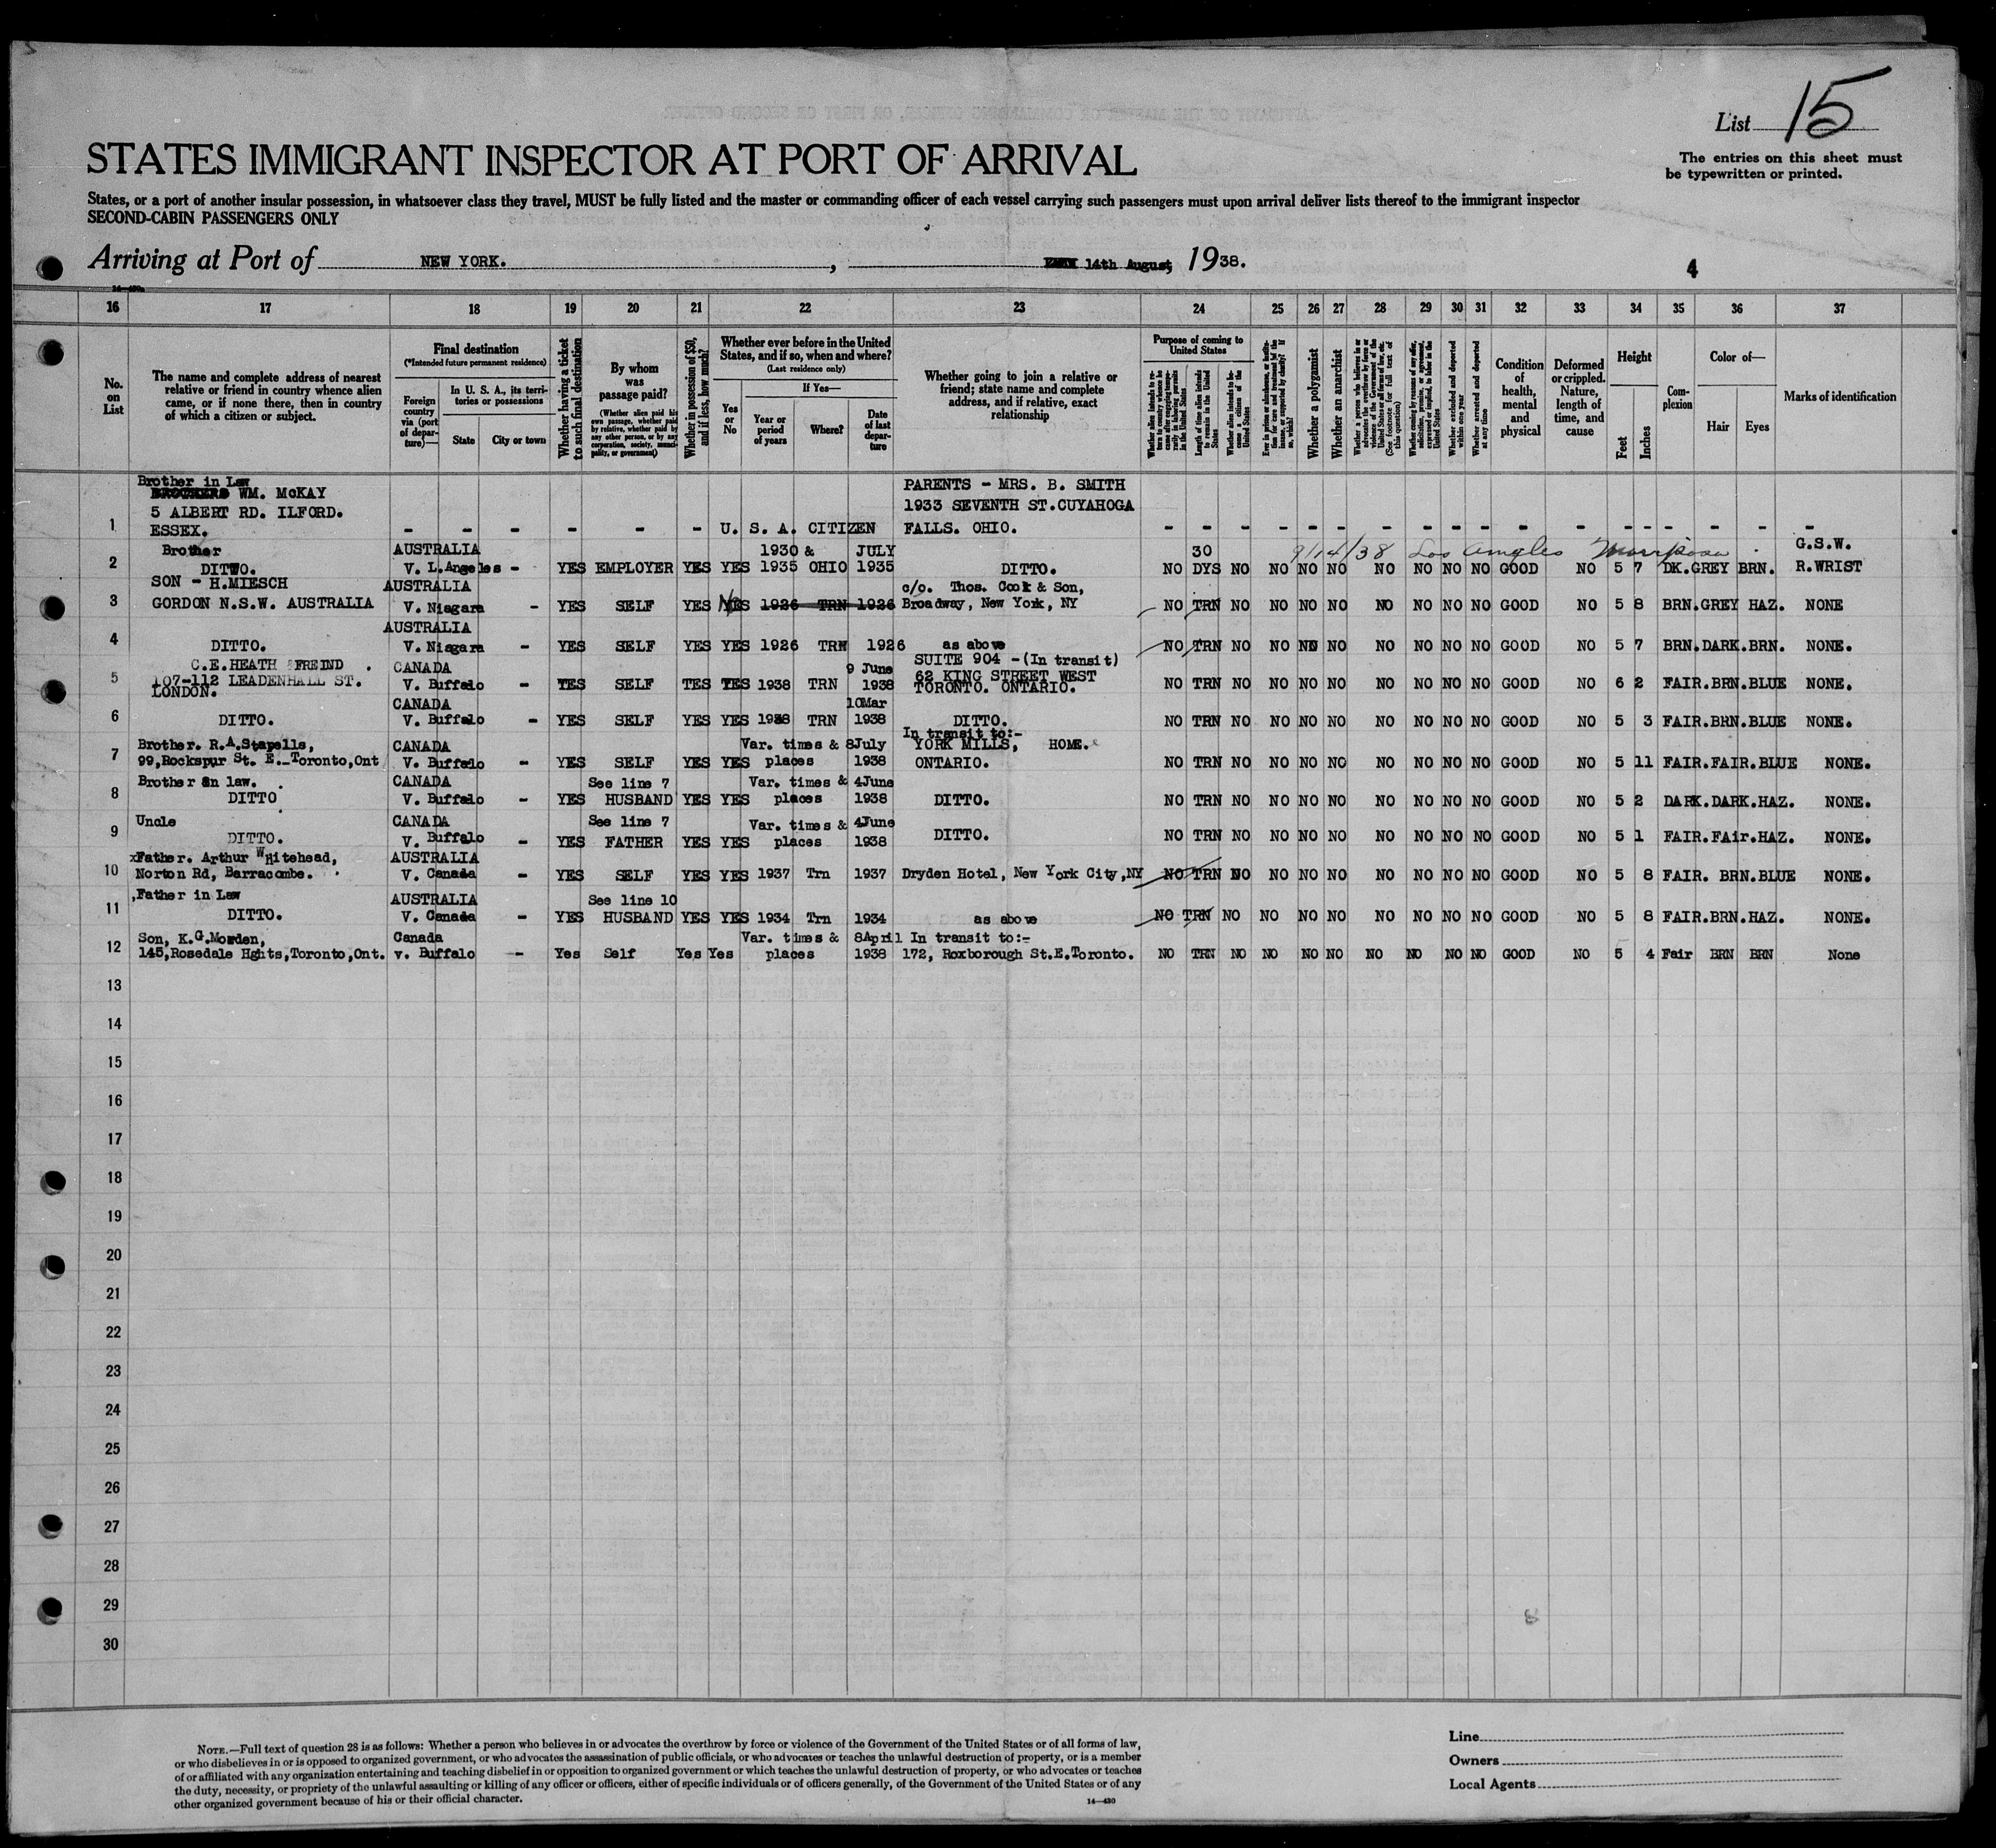 List 15
STATES IMMIGRANT INSPECTOR AT PORT OF ARRIVAL
The entries on this sheet must
be typewritten or printed.
States, or a port of another insular possession, in whatsoever class they travel, MUST be fully listed and the master or commanding officer of each vessel carrying such passengers must upon arrival deliver lists thereof to the immigrant inspector
SECOND-CABIN PASSENGERS ONLY
Arriving at Port of NEW YORK. , 14th August, 1938.
4
16 17 18 19 20 21 22 23 24 25 26 27 28 29 30 31 32 33 34 35 36 37
No. on List
The name and complete address of nearest relative or friend in country whence alien came, or if none there, then in country of which a citizen or subject.
Final destination
(*Intended future permanent residence)
Foreign country via (port of departure)—
In U. S. A., its territories or possessions
State
City or town
Whether having a ticket to such final destination
By whom was passage paid?
(Whether alien paid his own passage, whether paid by relative, whether paid by any other person, or by any corporation, society, municipality, or government)
Whether in possession of $50, and if less, how much?
Whether ever before in the United States, and if so, when and where?
(Last residence only)
Yes or No
If Yes—
Year or period of years
Where?
Date of last departure
Whether going to join a relative or friend; state name and complete address, and if relative, exact relationship
Purpose of coming to United States
Length of time alien intends to remain in the United States
Whether alien intends to become a citizen of the United States
Whether a polygamist
Whether an anarchist
Whether excluded and deported within one year
Whether arrested and deported at any time
Condition of health, mental and physical
Deformed or crippled. Nature, length of time, and cause
Height
Feet
Inches
Complexion
Color of—
Hair
Eyes
Marks of identification
Brother in Law PARENTS - MRS. B. SMITH
BROTHERS WM. McKAY 1933 SEVENTH ST. CUYAHOGA
5 ALBERT RD. ILFORD.
1 ESSEX. - - - - - - U. S. A. CITIZEN FALLS. OHIO. - - - - - - - - - - - - - - - - - -
Brother AUSTRALIA 1930 & JULY 30 9/14/38 Los Angeles Mariposa G.S.W.
2 DITTO. V. L.Angeles - YES EMPLOYER YES YES 1935 OHIO 1935 DITTO. NO DYS NO NO NO NO NO NO NO NO GOOD NO 5 7 DK. GREY BRN. R.WRIST
SON - H.MIESCH AUSTRALIA c/o. Thos. Cook & Son,
3 GORDON N.S.W. AUSTRALIA V. Niagara - YES SELF YES YES No 1926 TRN 1926 Broadway, New York, NY NO TRN NO NO NO NO NO NO NO NO GOOD NO 5 8 BRN. GREY HAZ. NONE
AUSTRALIA
4 DITTO. V. Niagara - YES SELF YES YES 1926 TRN 1926 as above NO TRN NO NO NO NO NO NO NO NO GOOD NO 5 7 BRN. DARK. BRN. NONE.
C.E.HEATH FREIND . CANADA 9 June SUITE 904 - (In transit)
5 107-112 LEADENHALL ST. V. Buffalo - YES SELF TES YES 1938 TRN 1938 62 KING STREET WEST NO TRN NO NO NO NO NO NO NO NO GOOD NO 6 2 FAIR. BRN. BLUE NONE.
LONDON. TORONTO. ONTARIO.
CANADA 10Mar
6 DITTO. V. Buffalo - YES SELF YES YES 1938 TRN 1938 DITTO. NO TRN NO NO NO NO NO NO NO NO GOOD NO 5 3 FAIR. BRN. BLUE NONE.
In transit to:-
Brother. R.A.Stapells, CANADA Var. times & 8July YORK MILLS, HOME.
7 99,Rockspur St. E. Toronto,Ont V. Buffalo - YES SELF YES YES places 1938 ONTARIO. NO TRN NO NO NO NO NO NO NO NO GOOD NO 5 11 FAIR. FAIR. BLUE NONE.
Brother in law. CANADA See line 7 Var. times & 4June
8 DITTO V. Buffalo - YES HUSBAND YES YES places 1938 DITTO. NO TRN NO NO NO NO NO NO NO NO GOOD NO 5 2 DARK. DARK. HAZ. NONE.
Uncle CANADA See line 7 Var. times & 4June
9 DITTO. V. Buffalo - YES FATHER YES YES places 1938 DITTO. NO TRN NO NO NO NO NO NO NO NO GOOD NO 5 1 FAIR. FAir. HAZ. NONE.
xFather. Arthur WHitehead, AUSTRALIA
10 Norton Rd, Barracombe. V. Canada - YES SELF YES YES 1937 Trn 1937 Dryden Hotel, New York City,NY NO TRN NO NO NO NO NO NO NO NO GOOD NO 5 8 FAIR. BRN. BLUE NONE.
,Father in Law AUSTRALIA See line 10
11 DITTO. V. Canada - YES HUSBAND YES YES 1934 Trn 1934 as above NO TRN NO NO NO NO NO NO NO NO GOOD NO 5 8 FAIR. BRN. HAZ. NONE.
Son, K.G.Morden, Canada Var. times & 8April In transit to:-
12 145,Rosedale Hghts,Toronto,Ont. v. Buffalo - Yes Self Yes Yes places 1938 172, Roxborough St.E.Toronto. NO TRN NO NO NO NO NO NO NO NO GOOD NO 5 4 Fair BRN BRN None
13
14
15
16
17
18
19
20
21
22
23
24
25
26
27
28
29
30
NOTE.—Full text of question 28 is as follows: Whether a person who believes in or advocates the overthrow by force or violence of the Government of the United States or of all forms of law,
or who disbelieves in or is opposed to organized government, or who advocates the assassination of public officials, or who advocates or teaches the unlawful destruction of property, or is a member
of or affiliated with any organization entertaining and teaching disbelief in or opposition to organized government or which teaches the unlawful destruction of property, or who advocates or teaches
the duty, necessity, or propriety of the unlawful assaulting or killing of any officer or officers, either of specific individuals or of officers generally, of the Government of the United States or of any
other organized government because of his or their official character.
14—430
Line
Owners
Local Agents